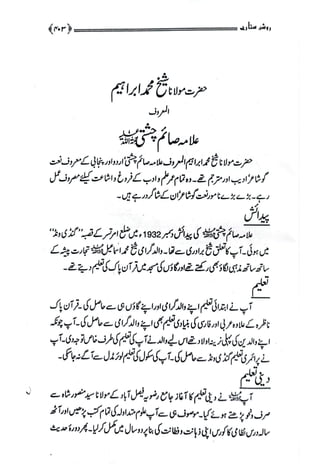 روشن ستارے ﴿۴۰۳﴾
حضرت مولانا شیخ محمد ابراہیم
المعروف
علامہ صائم چشتی
حضرت مولانا شیخ محمد ابراہیم المعروف علامہ صائم چشتی اردو اور پنجابی کے معروف نعت
گو شاعر ادیب اور مترجم تھے۔ وہ تمام عمر علم و ادب کے فروغ و اشاعت کیلئے مصروف عمل
رہے۔ بڑے بڑے نامور نعت گو شاعر ان کے شاگرد رہے ہیں۔
پیدائش
علامہ صائم چشتی کی پیدائش دسمبر 1932ء میں ضلع امرتسر کے قصبہ "گنڈی ونڈ"
میں ہوئی۔ آپ کا تعلق شیخ برادری سے تھا۔ والد گرامی شیخ محمد اسماعیل تجارت پیشہ کے
ساتھ ساتھ مذہبی لگاؤ بھی رکھتے تھے اور گاؤں کی مسجد میں قرآن پاک کی تعلیم دیتے تھے۔
تعلیم
آپ نے ابتدائی تعلیم اپنے والد گرامی اور اپنے گاؤں ہی سے حاصل کی۔ قرآن پاک
ناظرہ کے علاوہ عربی اور فارسی کی بنیادی تعلیم بھی اپنے والد گرامی سے حاصل کی۔ آپ چونکہ
اپنے والدین کی پہلی نرینہ اولاد تھے اس لیے والد نے آپ کی تعلیم کی طرف خاص توجہ دی۔ آپ
نے پرائمری تعلیم گنڈی ونڈ سے حاصل کی۔ آپ کی سکول کی تعلیم لوئر مڈل سے آگے نہ جا سکی۔
دینی تعلیم
آپ نے دینی تعلیم کا آغاز جامع رضویہ فیصل آباد کے مولانا سید منصور شاہ سے
صرف و نحو پڑھتے ہوئے کیا۔ موصوف ہی سے آپ علوم متداولہ کی تمام کتب پڑھیں اور آٹھ
سالہ درس نظامی کا کورس اپنی ذہانت و فطانت کی بنا پر دو سال میں مکمل کر لیا۔ پھر دورہ حدیث